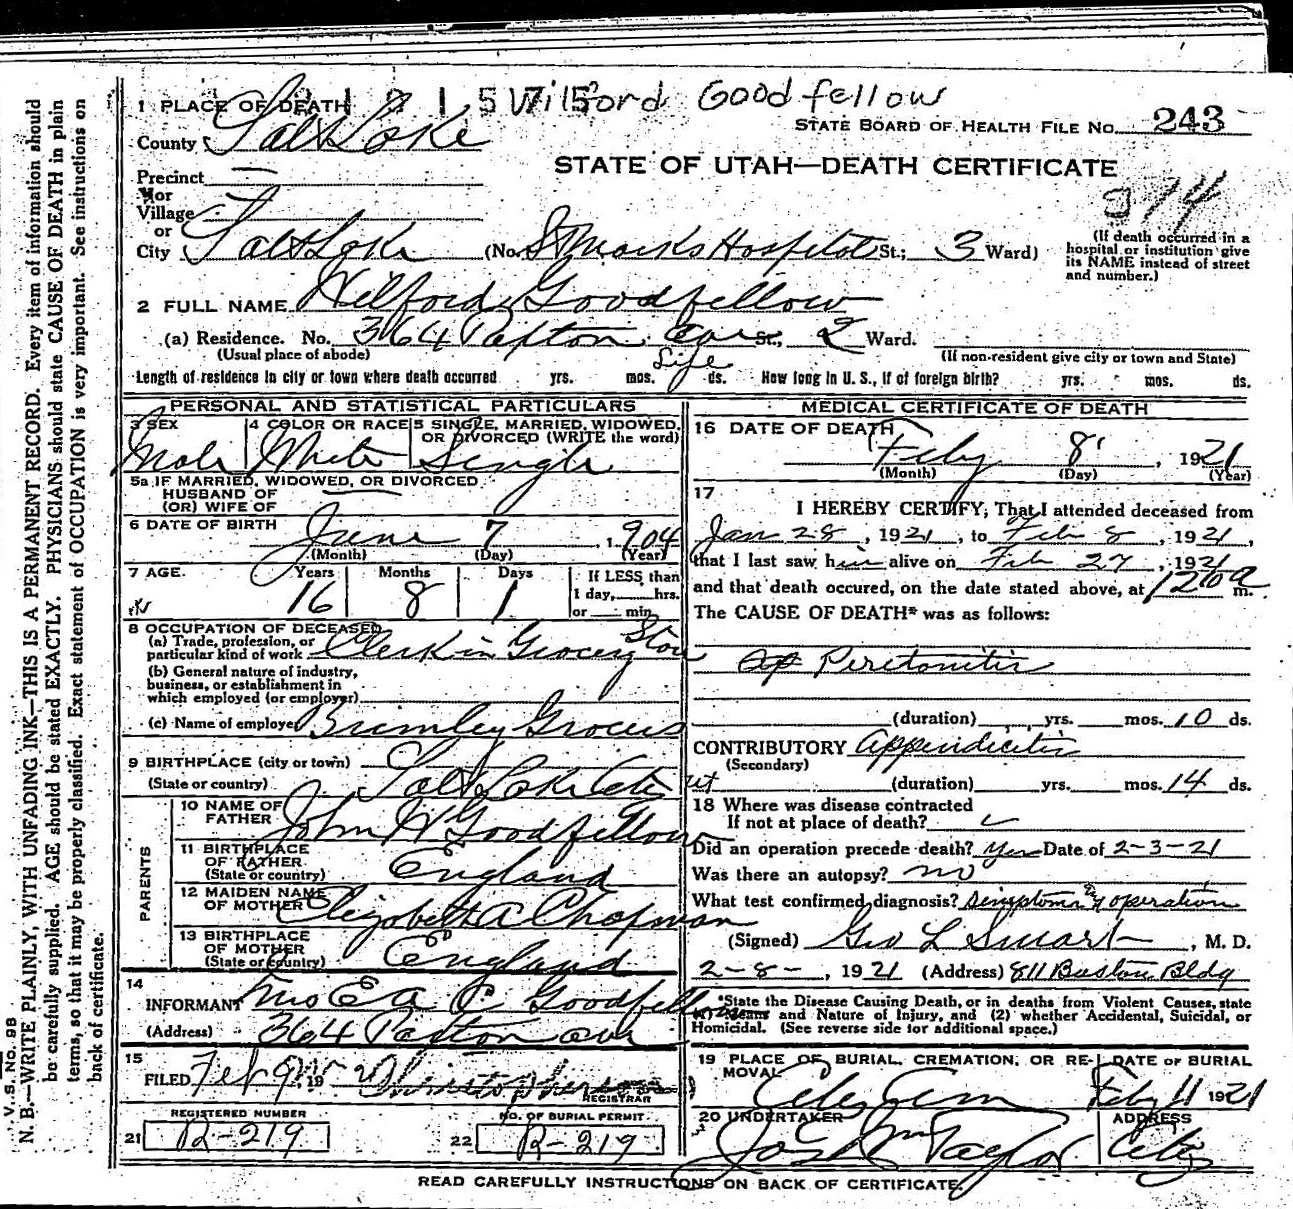 N. B.—WRITE PLAINLY, WITH UNFADING INK—THIS IS A PERMANENT RECORD. Every item of information should
be carefully supplied. AGE should be stated EXACTLY. PHYSICIANS should state CAUSE OF DEATH in plain
terms, so that it may be properly classified. Exact statement of OCCUPATION is very important. See instructions on
back of certificate.
V. S. No. 98
Wilford Goodfellow
1 PLACE OF DEATH
STATE BOARD OF HEALTH FILE NO. 243
County Salt Lake
STATE OF UTAH—DEATH CERTIFICATE
Precinct
or
Village
or
City Salt Lake (No. St Marks Hospital St.; 3 Ward)
(If death occurred in a
hospital or institution give
its NAME instead of street
and number.)
2 FULL NAME Wilford Goodfellow
(a) Residence. No. 364 Paxton Ave St., 2 Ward.
(Usual place of abode) (If non-resident give city or town and State)
Length of residence in city or town where death occurred yrs. mos. Life ds. How long in U. S., if of foreign birth? yrs. mos. ds.
PERSONAL AND STATISTICAL PARTICULARS
3 SEX Male
4 COLOR OR RACE White
5 SINGLE, MARRIED, WIDOWED,
OR DIVORCED (WRITE the word) Single
5a IF MARRIED, WIDOWED, OR DIVORCED
HUSBAND OF
(OR) WIFE OF
6 DATE OF BIRTH
June 7, 1904
(Month) (Day) (Year)
7 AGE. Years Months Days If LESS than
1 day, hrs.
16 8 1 or min.
8 OCCUPATION OF DECEASED
(a) Trade, profession, or
particular kind of work Clerk in Grocery Store
(b) General nature of industry,
business, or establishment in
which employed (or employer)
(c) Name of employer Brimley Grocers
9 BIRTHPLACE (city or town)
(State or country) Salt Lake City Ut
PARENTS
10 NAME OF
FATHER John W Goodfellow
11 BIRTHPLACE
OF FATHER
(State or country) England
12 MAIDEN NAME
OF MOTHER Elizabeth A Chapman
13 BIRTHPLACE
OF MOTHER
(State or country) England
14
INFORMANT Mrs E A C Goodfellow
(Address) 364 Paxton Ave
15
FILED Feb 9, 19 21
REGISTRAR
REGISTERED NUMBER
21 R-219
NO. OF BURIAL PERMIT
22 R-219
MEDICAL CERTIFICATE OF DEATH
16 DATE OF DEATH
Feby 8, 1921
(Month) (Day) (Year)
17
I HEREBY CERTIFY, That I attended deceased from
Jan 28, 1921, to Feb 8, 1921,
that I last saw him alive on Feb 27, 1921
and that death occured, on the date stated above, at m.
The CAUSE OF DEATH* was as follows:
Peretonitis
(duration) yrs. mos. 10 ds.
CONTRIBUTORY Appendicitis
(Secondary)
(duration) yrs. mos. 14 ds.
18 Where was disease contracted
If not at place of death?
Did an operation precede death? Yes Date of 2-3-21
Was there an autopsy? no
What test confirmed diagnosis? Simptoms & operation
(Signed) Geo L Smart, M. D.
2-8-, 1921 (Address) 811 Boston Bldg
*State the Disease Causing Death, or in deaths from Violent Causes, state
(1) Means and Nature of Injury, and (2) whether Accidental, Suicidal, or
Homicidal. (See reverse side for additional space.)
19 PLACE OF BURIAL, CREMATION, OR RE-
MOVAL City Cem
DATE OF BURIAL
Feby 11 1921
20 UNDERTAKER
Jos Wm Taylor
ADDRESS
City
READ CAREFULLY INSTRUCTIONS ON BACK OF CERTIFICATE.